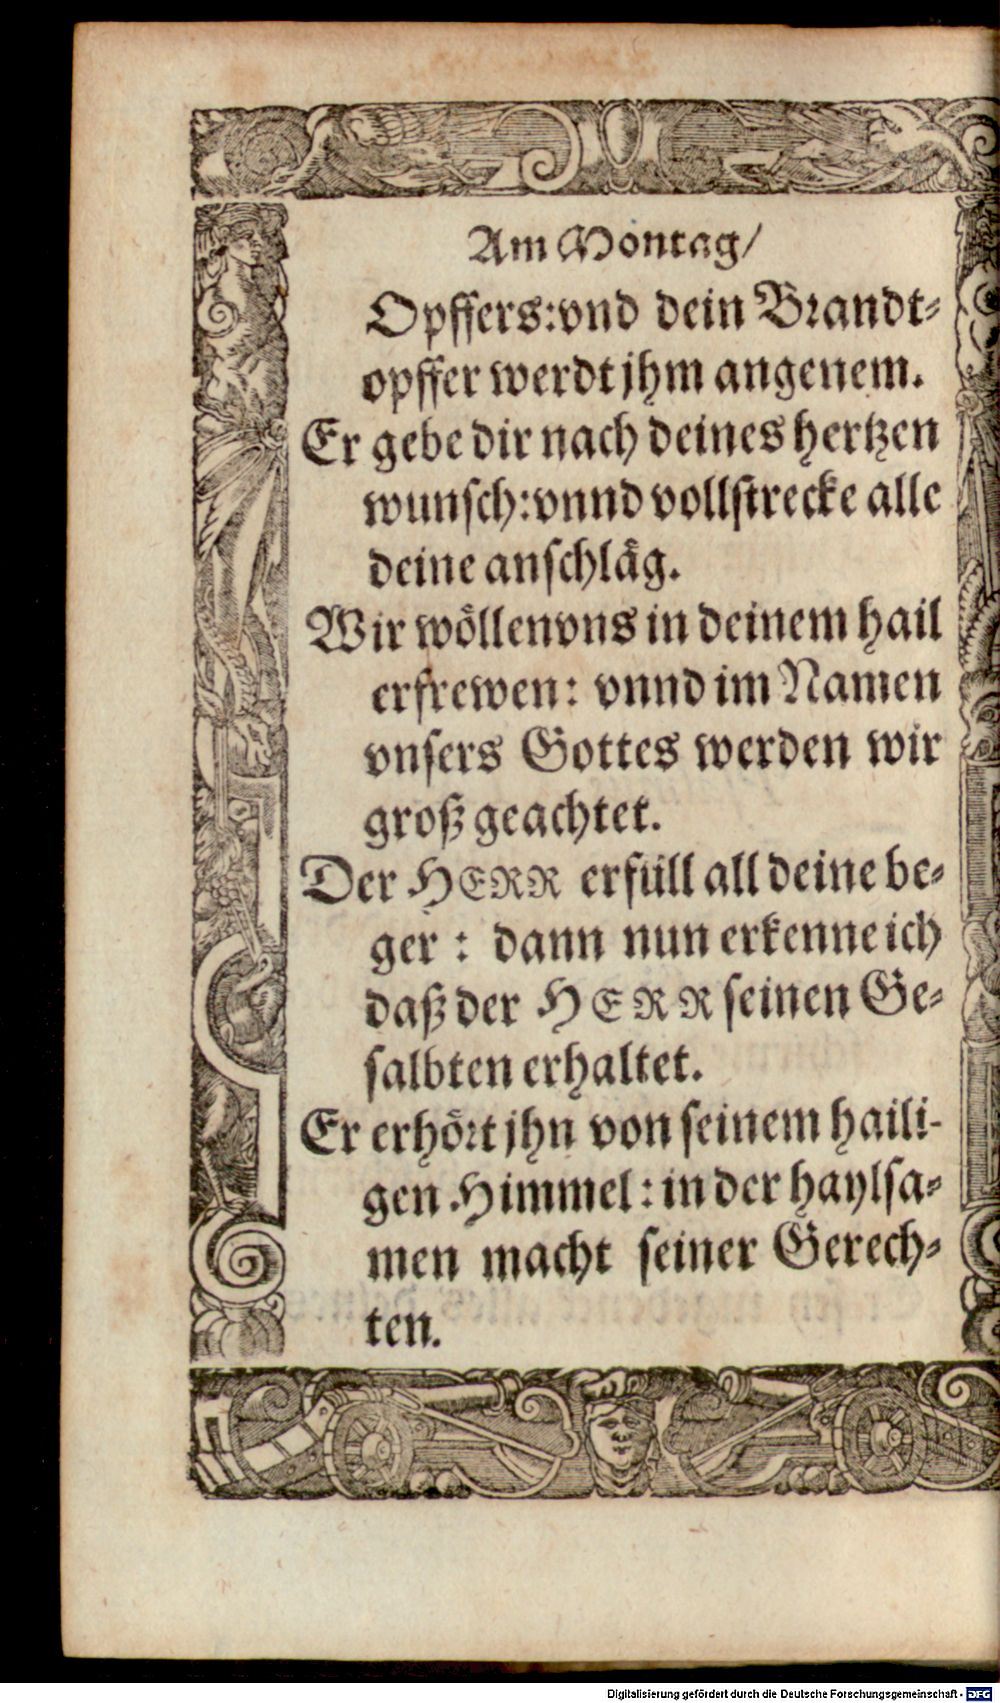 Am Montag/
Opffers: vnd dein Brandt-
opffer werdt jhm angenem.
Er gebe dir nach deines hertzen
wunsch: vnnd vollstrecke alle
deine anschläg.
Wir wöllen vns in deinem hail
erfrewen: vnnd im Namen
vnsers Gottes werden wir
groß geachtet.
Der HERR erfüll all deine be-
ger: dann nun erkenne ich
daß der HERR seinen Ge-
salbten erhaltet.
Er erhört jhn von seinem haili-
gen Himmel: in der haylsa-
men macht seiner Gerech-
ten.
Digitalisierung gefördert durch die Deutsche Forschungsgemeinschaft - DFG